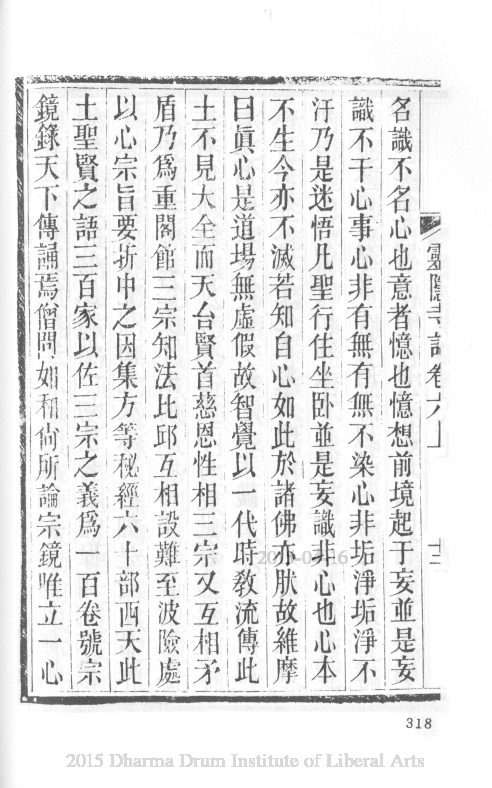 靈隱寺誌卷六上
十三
名識不名心也意者憶也憶想前境起于妄並是妄
識不干心事心非有無有無不染心非垢淨垢淨不
汙乃是迷悟凡聖行住坐卧並是妄識非心也心本
不生今亦不滅若知自心如此於諸佛亦肰故維摩
曰眞心是道場無虛假故智覺以一代時敎流傳此
土不見大全而天台賢首慈恩性相三宗又互相矛
盾乃爲重閣館三宗知法比邱互相設難至波險處
以心宗旨要折中之因集方等秘經六十部西天此
土聖賢之語三百家以佐三宗之義爲一百卷號宗
鏡錄天下傳誦焉僧問如和尙所論宗鏡唯立一心
318
2015 Dharma Drum Institute of Liberal Arts